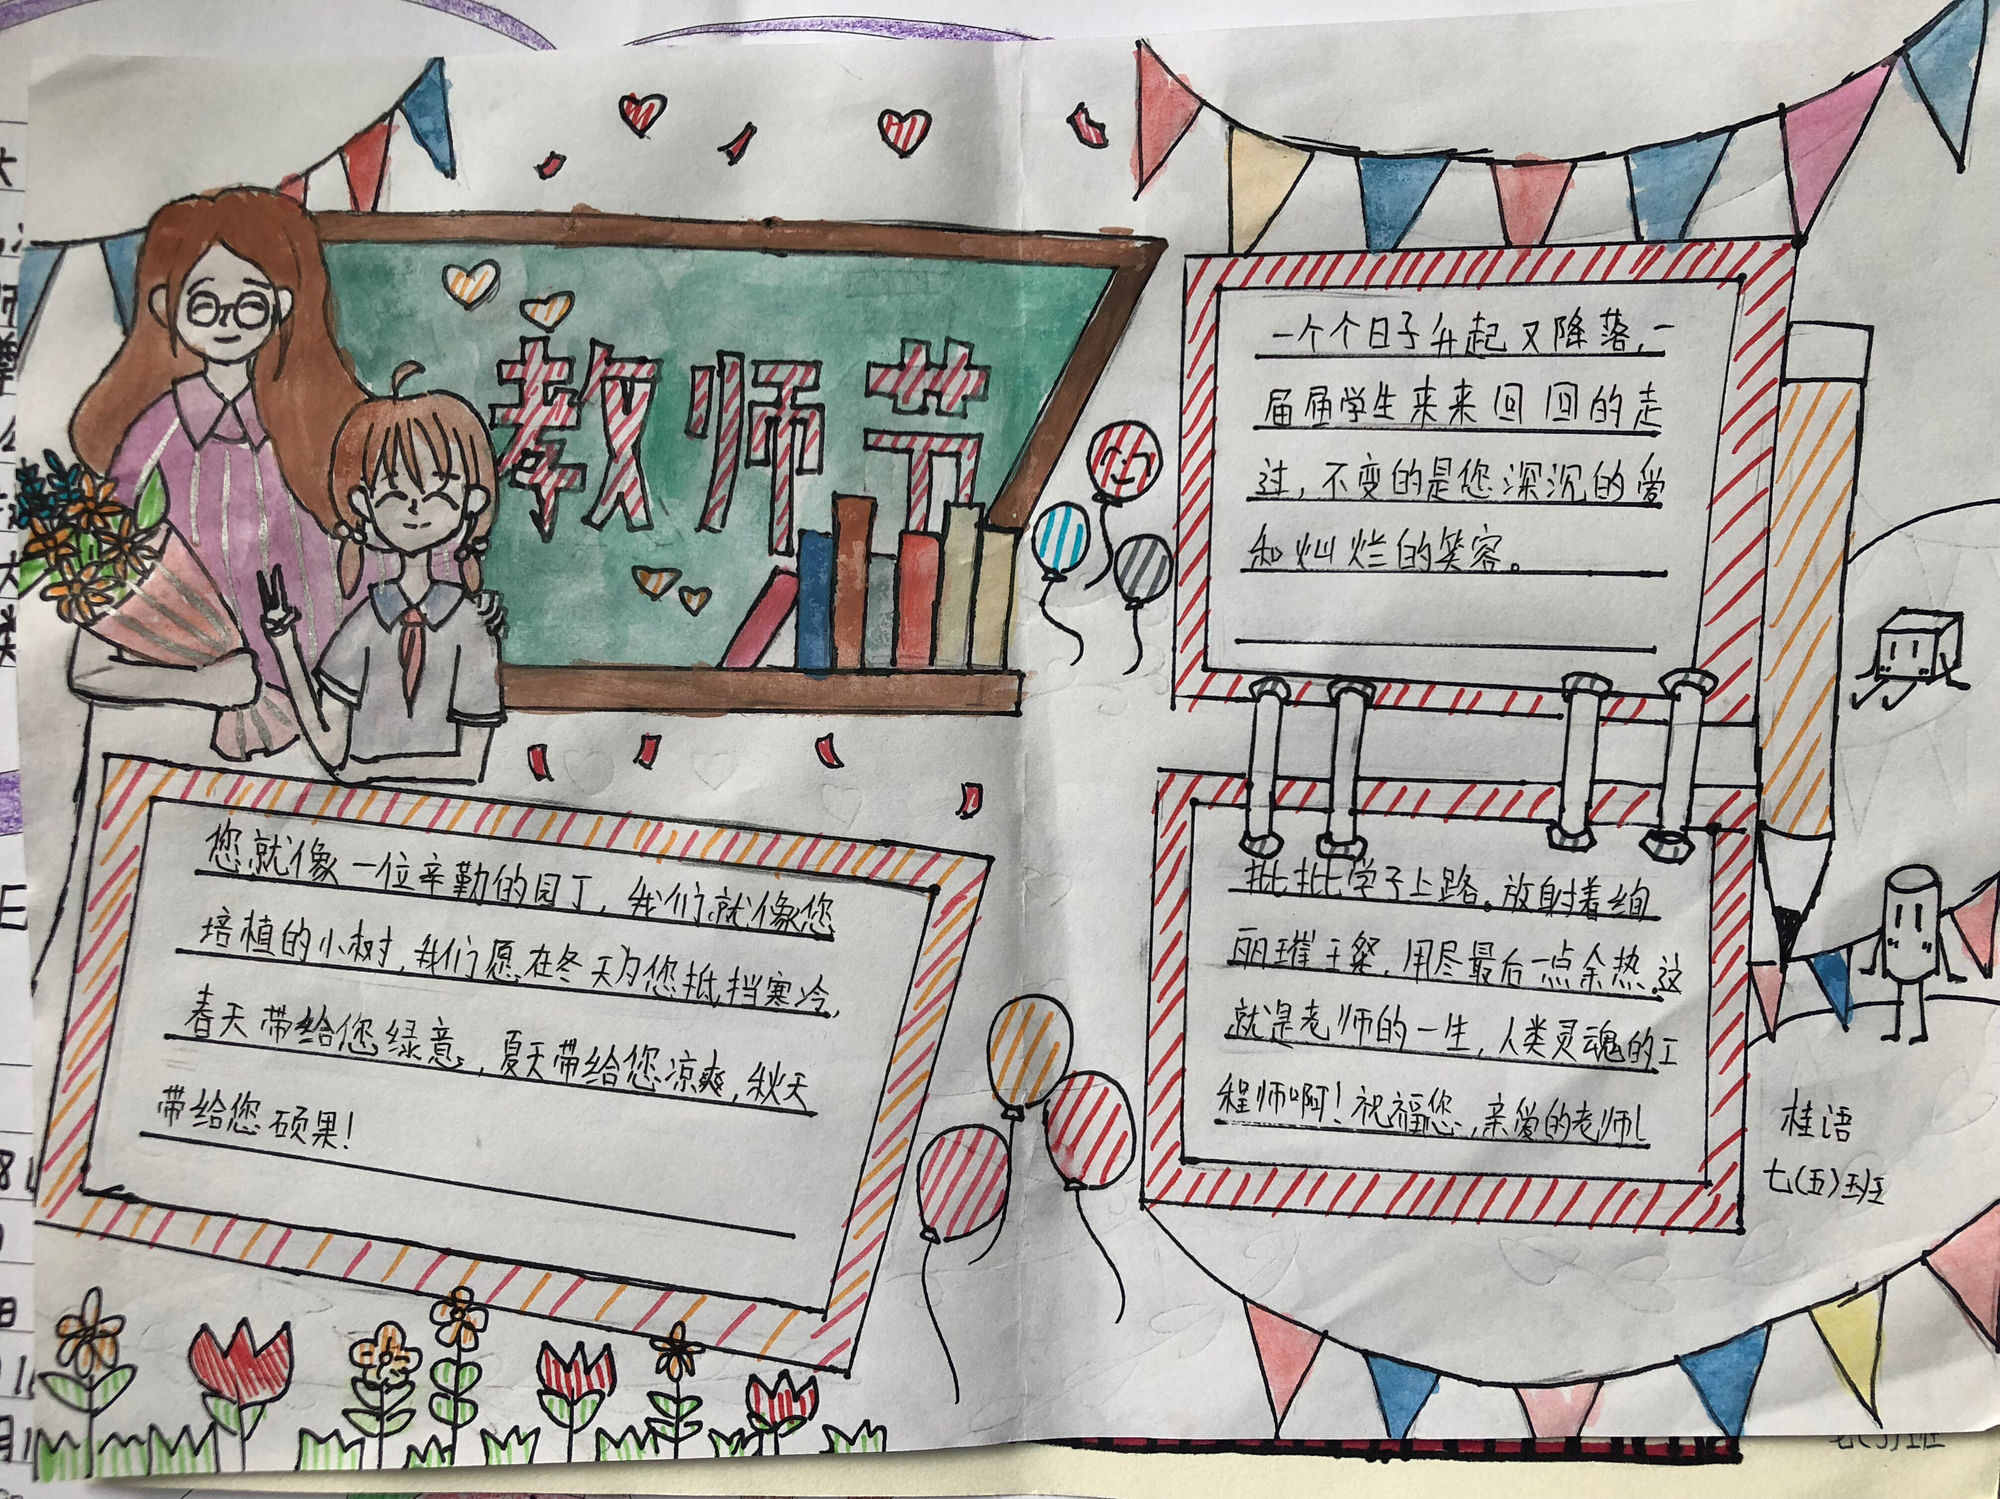 教师节
一个个日子升起又降落,一
届届学生来来回回的走
过,不变的是您深沉的爱
和灿烂的笑容。
您就像一位辛勤的园丁,我们就像您
培植的小树,我们愿在冬天为您抵挡寒冷,
春天带给您绿意,夏天带给您凉爽,秋天
带给您硕果!
批批学子上路。放射着绚
丽璀王粲,用尽最后一点余热,这
就是老师的一生,人类灵魂的工
程师啊!祝福您,亲爱的老师!
桂语
七(五)班